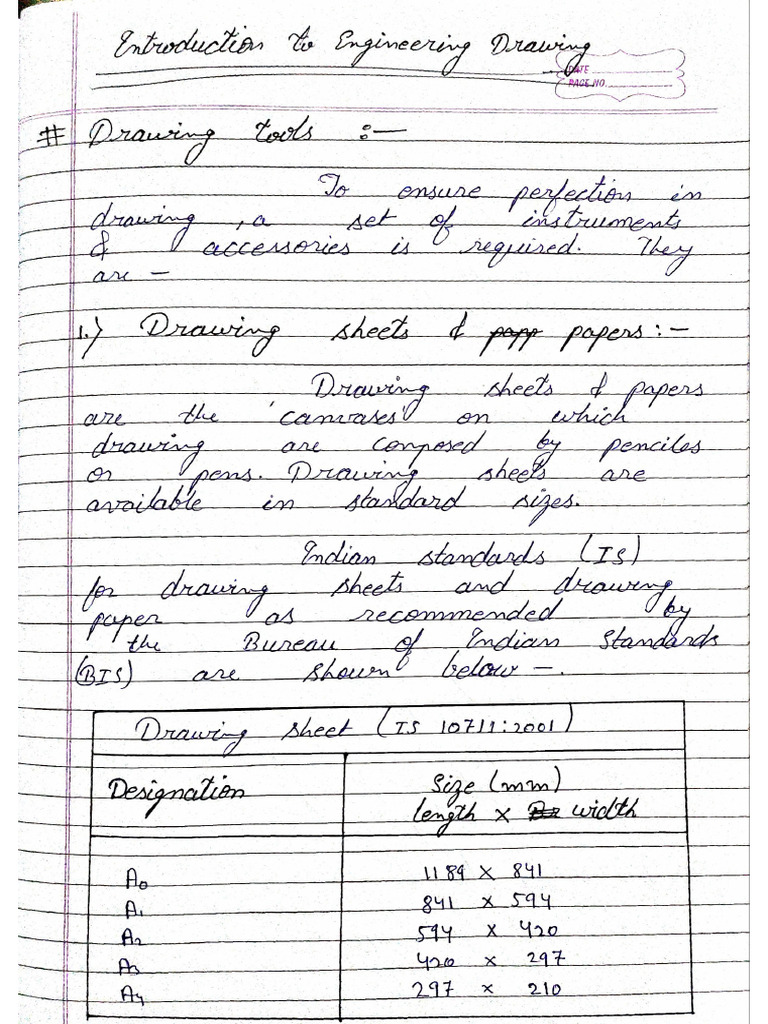 Introduction to Engineering Drawing
DATE
PAGE NO.
# Drawing tools :—
To ensure perfection in
drawing, a set of instruments
& accessories is required. They
are —
1.) Drawing sheets & papp papers :-
Drawing sheets & papers
are the 'canvases' on which
drawing are composed by penciles
or pens. Drawing sheets are
available in standard sizes.
Indian standards (IS)
for drawing sheets and drawing
paper as recommended by
the Bureau of Indian Standards
(BIS) are shown below —.
Drawing sheet (IS 10711:2001)
Designation Size (mm)
length × width
A0 1189 × 841
A1 841 × 594
A2 594 × 420
A3 420 × 297
A4 297 × 210